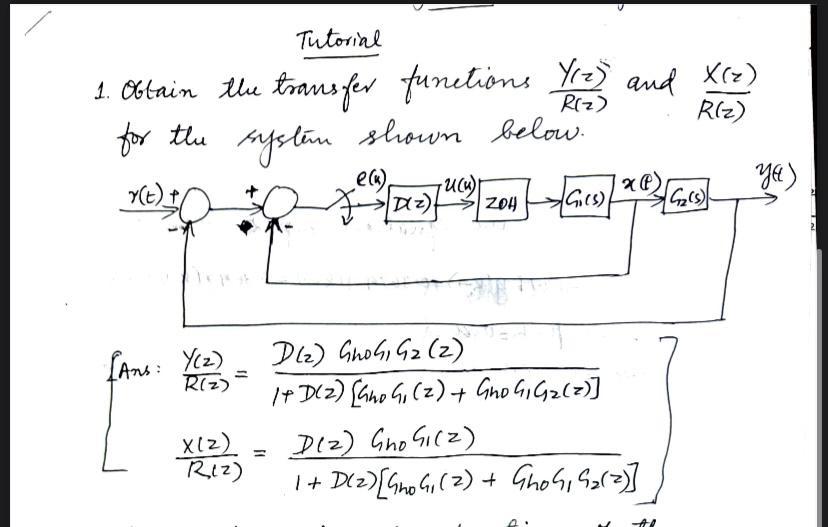 Tutorial
1. Obtain the transfer functions Y(z)/R(z) and X(z)/R(z)
for the system shown below.
r(t) + - + - e(k) D(z) u(k) ZOH G1(s) x(t) G2(s) y(t)
[Ans: Y(z)/R(z) = D(z) Gh0G1G2(z) / 1 + D(z) [Gh0G1(z) + Gh0G1G2(z)]
X(z)/R(z) = D(z) Gh0G1(z) / 1 + D(z)[Gh0G1(z) + Gh0G1G2(z)] ]